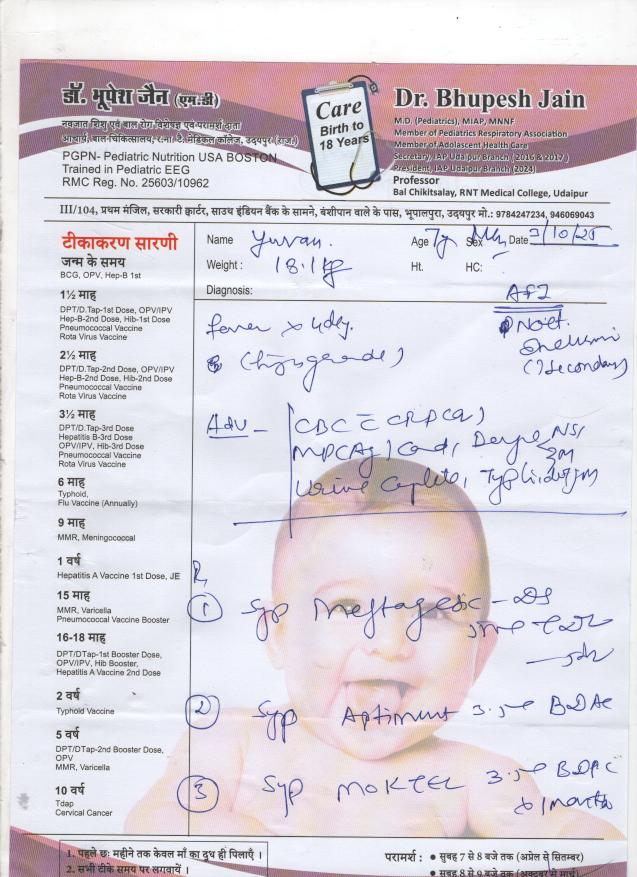 डॉ. भूपेश जैन (एम.डी)
नवजात शिशु एवं बाल रोग विशेषज्ञ एवं परामर्श दाता
आचार्य, बाल चिकित्सालय, र.ना. टै. मेडिकल कॉलेज, उदयपुर (राज.)
PGPN- Pediatric Nutrition USA BOSTON
Trained in Pediatric EEG
RMC Reg. No. 25603/10962
Care
Birth to
18 Years
Dr. Bhupesh Jain
M.D. (Pediatrics), MIAP, MNNF
Member of Pediatrics Respiratory Association
Member of Adolascent Health Care
Secretary, IAP Udaipur Branch (2016 & 2017)
President, IAP Udaipur Branch (2024)
Professor
Bal Chikitsalay, RNT Medical College, Udaipur
III/104, प्रथम मंजिल, सरकारी क्वार्टर, साउथ इंडियन बैंक के सामने, बंशीपान वाले के पास, भूपालपुरा, उदयपुर मो.: 9784247234, 946069043
टीकाकरण सारणी
जन्म के समय
BCG, OPV, Hep-B 1st
1½ माह
DPT/D.Tap-1st Dose, OPV/IPV
Hep-B-2nd Dose, Hib-1st Dose
Pneumococcal Vaccine
Rota Virus Vaccine
2½ माह
DPT/D.Tap-2nd Dose, OPV/IPV
Hep-B-2nd Dose, Hib-2nd Dose
Pneumococcal Vaccine
Rota Virus Vaccine
3½ माह
DPT/D.Tap-3rd Dose
Hepatitis B-3rd Dose
OPV/IPV, Hib-3rd Dose
Pneumococcal Vaccine
Rota Virus Vaccine
6 माह
Typhoid,
Flu Vaccine (Annually)
9 माह
MMR, Meningococcal
1 वर्ष
Hepatitis A Vaccine 1st Dose, JE
15 माह
MMR, Varicella
Pneumococcal Vaccine Booster
16-18 माह
DPT/DTap-1st Booster Dose,
OPV/IPV, Hib Booster,
Hepatitis A Vaccine 2nd Dose
2 वर्ष
Typhoid Vaccine
5 वर्ष
DPT/DTap-2nd Booster Dose,
OPV
MMR, Varicella
10 वर्ष
Tdap
Cervical Cancer
Name Yuvan. Age 7y Sex Date /10/25
Weight : 18.1 kg Ht. HC:
Diagnosis:
AFI
fever x 4day.
(High grade)
Adv -
CBC CRP(Q)
MPCAg / Card, NS1
Urine
R
1 Syp Meftagesic - DS
2 Syp 3.5 BD
3 Syp 3.5 BD
x 1 month
1. पहले छः महीने तक केवल माँ का दुध ही पिलाएँ ।
2. सभी टीके समय पर लगवायें ।
परामर्श : • सुबह 7 से 8 बजे तक (अप्रेल से सितम्बर)
• सुबह 8 से 9 बजे तक (अक्टूबर से मार्च)